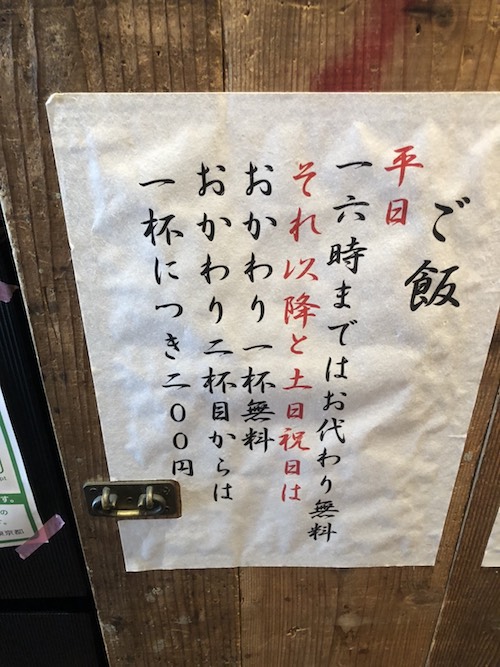 ご飯
平日
一六時まではお代わり無料
それ以降と土日祝日は
おかわり一杯無料
おかわり二杯目からは
一杯につき二〇〇円
す。
の
。
京都